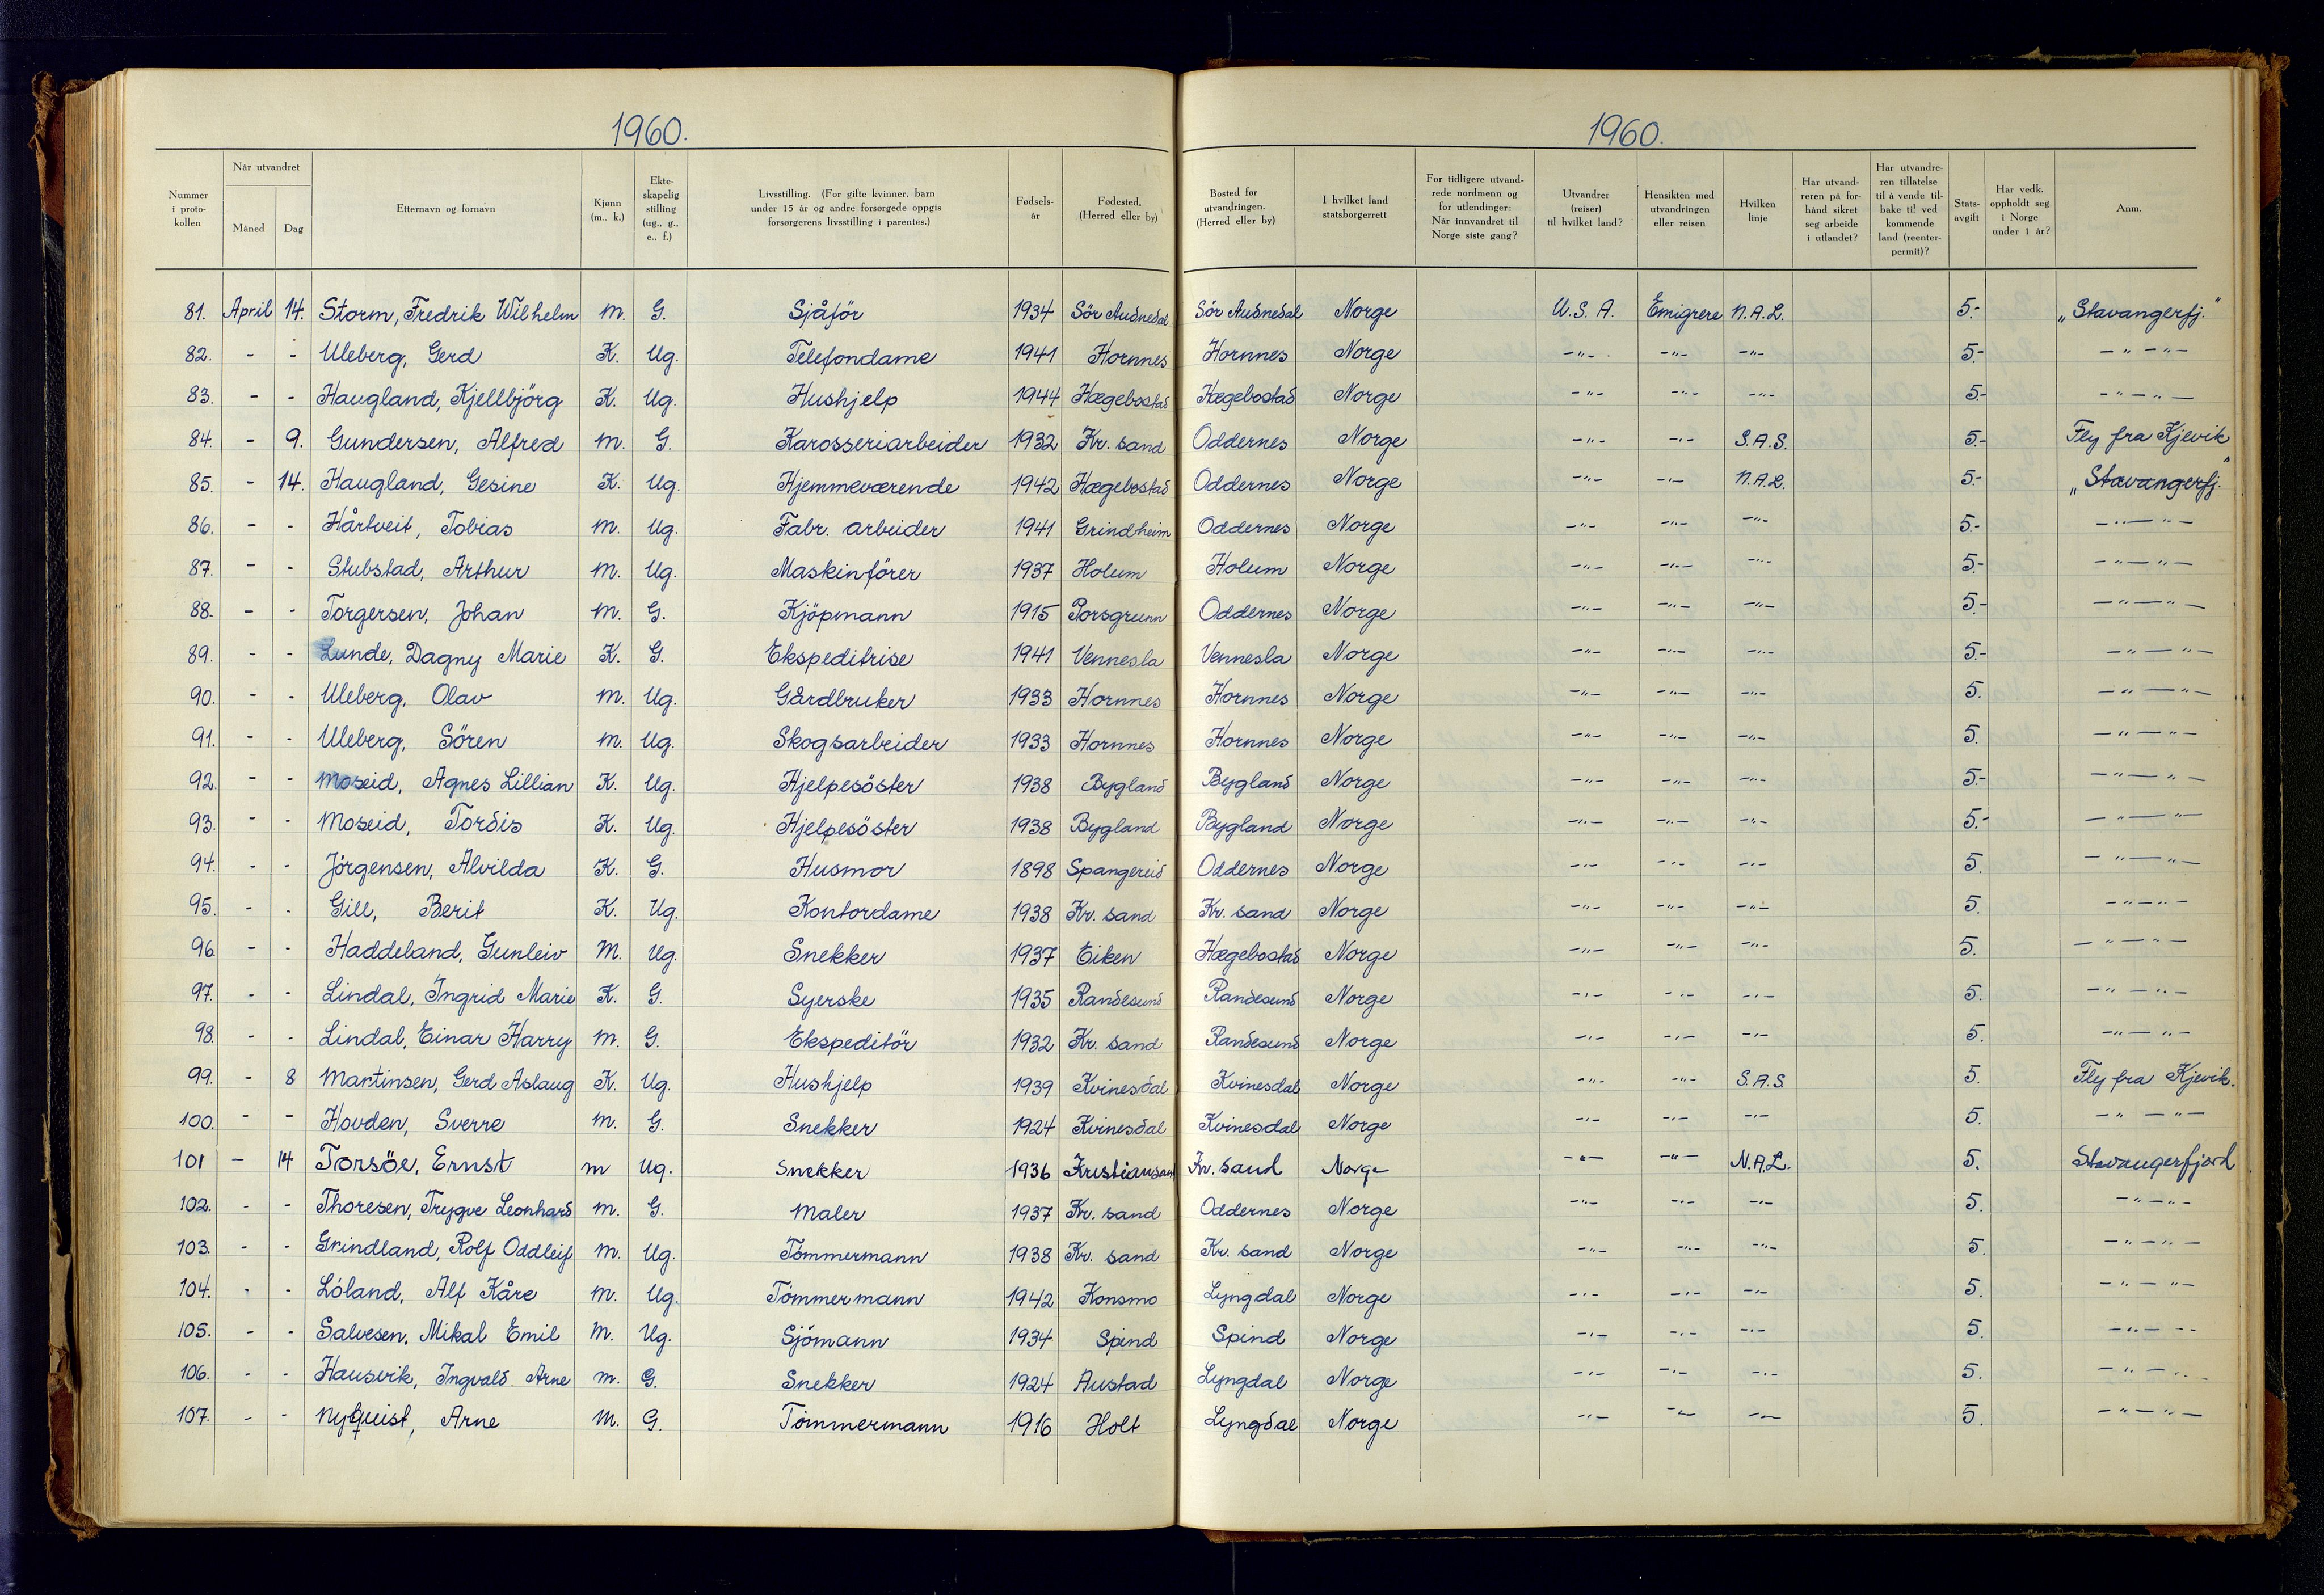 1960.
1960.
Nummer i protokollen | Når utvandret Måned | Dag | Etternavn og fornavn | Kjønn (m.. k.) | Ekteskapelig stilling (ug.. g.. e.. f.) | Livsstilling. (For gifte kvinner. barn under 15 år og andre forsørgede oppgis forsørgerens livsstilling i parentes.) | Fødselsår | Fødested. (Herred eller by) | Bosted før utvandringen. (Herred eller by) | I hvilket land statsborgerrett | For tidligere utvandrede nordmenn og for utlendinger: Når innvandret til Norge siste gang? | Utvandrer (reiser) til hvilket land? | Hensikten med utvandringen eller reisen | Hvilken linje | Har utvandreren på forhånd sikret seg arbeide i utlandet? | Har utvandreren tillatelse til å vende tilbake til ved kommende land (reenterpermit)? | Statsavgift | Har vedk. oppholdt seg i Norge under 1 år? | Anm.
81. April 14. Storm, Fredrik Wilhelm m. G. Sjåför 1934 Sör Audnedal Sör Audnedal Norge U.S.A. Emigrere N.A.L. 5.- „Stavangerfj."
82. - - Uleberg, Gerd K. Ug. Telefondame 1941 Hornnes Hornnes Norge -"- -"- -"- 5.- -"-"-
83. - - Haugland, Kjellbjörg K. Ug. Hushjelp 1944 Hægebostad Hægebostad Norge -"- -"- -"- 5.- -"-"-
84. - 9. Gundersen, Alfred m. G. Karosseriarbeider 1932 Kr. sand Oddernes Norge -"- -"- S.A.S. 5.- Fly fra Kjevik
85. - 14. Haugland, Gesine K. Ug. Hjemmeværende 1942 Hægebostad Oddernes Norge -"- -"- N.A.L. 5.- „Stavangerfj."
86. - - Hårtveit, Tobias m. Ug. Fabr. arbeider 1941 Grindheim Oddernes Norge -"- -"- -"- 5.- -"-"-
87. - - Stubstad, Arthur m. Ug. Maskinförer 1937 Holum Holum Norge -"- -"- -"- 5.- -"-"-
88. - - Torgersen, Johan m. G. Kjöpmann 1915 Porsgrunn Oddernes Norge -"- -"- -"- 5.- -"-"-
89. - - Lunde, Dagny Marie K. G. Ekspeditrise 1941 Vennesla Vennesla Norge -"- -"- -"- 5.- -"-"-
90. - - Uleberg, Olav m. Ug. Gårdbruker 1933 Hornnes Hornnes Norge -"- -"- -"- 5. -"-"-
91. - - Uleberg, Sören m. Ug. Skogsarbeider 1933 Hornnes Hornnes Norge -"- -"- -"- 5. -"-"-
92. - - Moseid, Agnes Lillian K. Ug. Hjelpesöster 1938 Bygland Bygland Norge -"- -"- -"- 5.- -"-"-
93. - - Moseid, Tordis K. Ug. Hjelpesöster 1938 Bygland Bygland Norge -"- -"- -"- 5.- -"-"-
94. - - Jörgensen, Alvilda K. G. Husmor 1898 Spangereid Oddernes Norge -"- -"- -"- 5. -"-"-
95. - - Gill, Berit K. Ug. Kontordame 1938 Kr. sand Kr. sand Norge -"- -"- -"- 5. -"-"-
96. - - Haddeland, Gunleiv M. Ug. Snekker 1937 Eiken Hægebostad Norge -"- -"- -"- 5. -"-"-
97. - - Lindal, Ingrid Marie K. G. Syerske 1935 Randesund Randesund Norge -"- -"- -"- 5. -"-"-
98. - - Lindal, Einar Harry m. G. Ekspeditör 1932 Kr. sand Randesund Norge -"- -"- -"- 5. -"-"-
99. - 8 Martinsen, Gerd Aslaug K. Ug. Hushjelp 1939 Kvinesdal Kvinesdal Norge -"- -"- S.A.S. 5. Fly fra Kjevik.
100. - - Hovden, Sverre m. G. Snekker 1924 Kvinesdal Kvinesdal Norge -"- -"- -"- 5. -"-"-
101 - 14 Torsöe, Ernst m Ug. Snekker 1936 Kristiansand Kr. sand Norge -"- -"- N.A.L. 5. Stavangerfjord
102. - - Thoresen, Trygve Leonhard m. G. Maler 1937 Kr. sand Oddernes Norge -"- -"- -"- 5. -"-"-
103. - - Grindland, Rolf Oddleif m. Ug. Tömmermann 1938 Kr. sand Kr. sand Norge -"- -"- -"- 5. -"-"-
104. - - Löland, Alf Kåre m. Ug. Tömmermann 1942 Konsmo Lyngdal Norge -"- -"- -"- 5. -"-"-
105. - - Salvesen, Mikal Emil M. Ug. Sjömann 1934 Spind Spind Norge -"- -"- -"- 5. -"-"-
106. - - Hausvik, Ingvald Arne m. G. Snekker 1924 Austad Lyngdal Norge -"- -"- -"- 5. -"-"-
107. - - Nyquist, Arne M. G. Tömmermann 1916 Holt Lyngdal Norge -"- -"- -"- 5. -"-"-